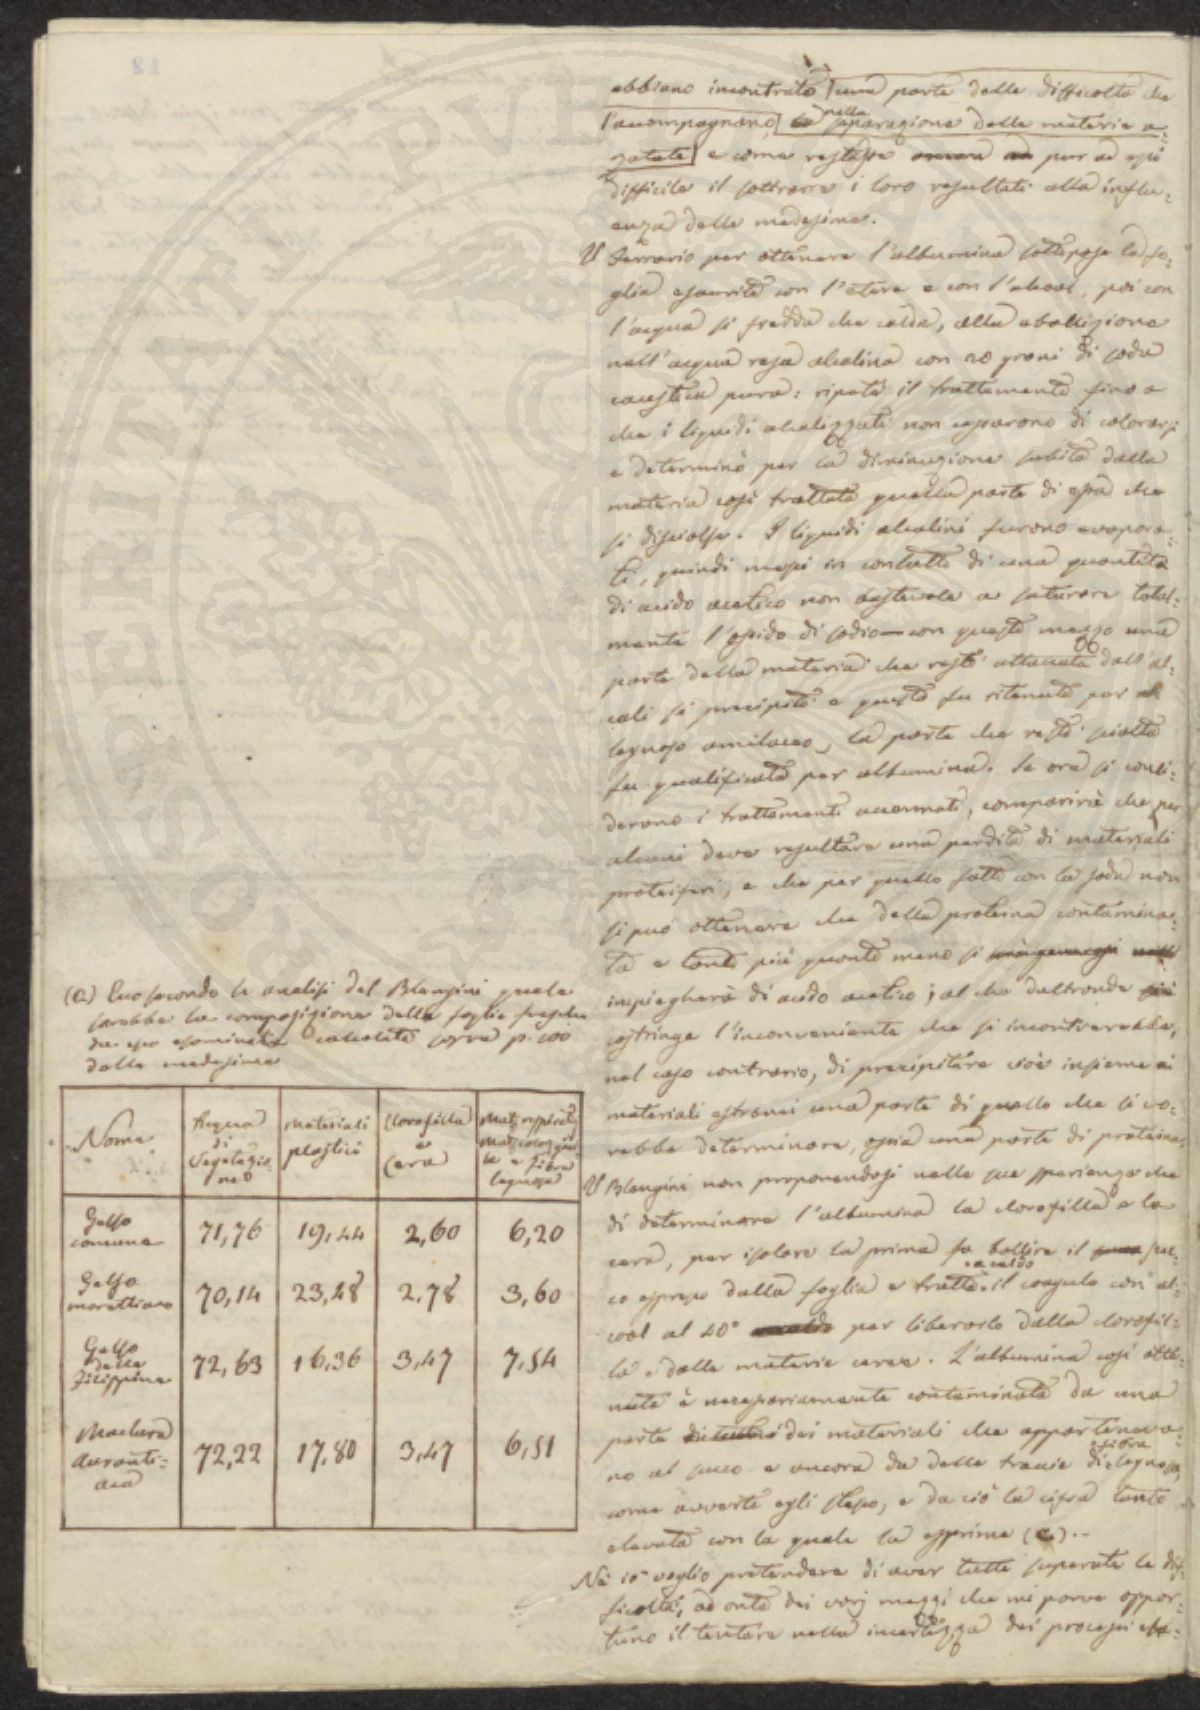 abbiano incontrato una parte delle difficoltà che
l'accompagnano, nella separazione delle materie a-
zotate e come restasse pur ad essi
difficile il sottrarre i loro resultati alla influ-
enza delle medesime.
Ferrario per ottenere l'albumina sottopose la fo-
glia esaurita con l'etere e con l'alcool, poi con
l'acqua sì fredda che calda, alla ebollizione
nell'acqua resa alcalina con 20 grani di soda
caustica pura: ripetè il trattamento fino a
che i liquidi alcalizzati non cessarono di colorarsi
e determinò per la diminuzione subita dalla
materia così trattata quella parte di essa che
si disciolse. I liquidi alcalini furono evapora-
ti, quindi messi in contatto di una quantità
di acido acetico non bastevole a saturare total-
mente l'ossido di sodio — con questo mezzo una
parte della materia che restò attaccata dall'al-
cali si precipitò e questo fu ritenuto per
legnoso amilaceo, la parte che restò sciolta
fu qualificata per albumina. Se ora si consi-
derano i trattamenti accennati, comparirà che per
alcuni deve resultare una perdita di materiali
proteiferi, e che per quello fatto con la soda non
si può ottenere che della proteina contamina-
ta e tanto più quanto meno si
impiegherà di acido acetico; al che daltronde
costringe l'inconveniente che si incontrerebbe,
nel caso contrario, di precipitare cioè insieme ai
materiali estranei una parte di quello che si vo-
rebbe determinare, ossia una parte di proteina.
Blengini non proponendosi nelle sue sperienze che
di determinare l'albumina la clorofilla e la
cera, per isolare la prima fa bollire il suc-
co espresso dalla foglia e tratta a caldo il coagulo con al-
cool al 40° per liberarlo dalla clorofil-
la e dalle materie ceree. L'albumina così otte-
nuta è necessariamente contaminata da una
parte dei materiali che apparteneva-
no al succo e ancora da delle traccie di fibra legnosa,
come avverte egli stesso, e da ciò la cifra tanto
elevata con la quale la esprime (a).
Nè io voglio pretendere di aver tutte superate le dif-
ficoltà, ad onta dei varj mezzi che mi parve oppor-
tuno il tentare nella incertezza dei processi
(a) Ecco secondo le analisi del Blengini quale
sarebbe la composizione delle foglie fresche
da esso esaminate calcolata sopra p. 100
delle medesime
Nome | Acqua di Vegetazione | Materiali plastici | Clorofilla e Cera | fibra legnosa
Gelso comune 71,76 19,44 2,60 6,20
Gelso morettiano 70,14 23,48 2,78 3,60
Gelso delle Filippine 72,63 16,36 3,47 7,54
Maclura Auranti-aca 72,22 17,80 3,47 6,51